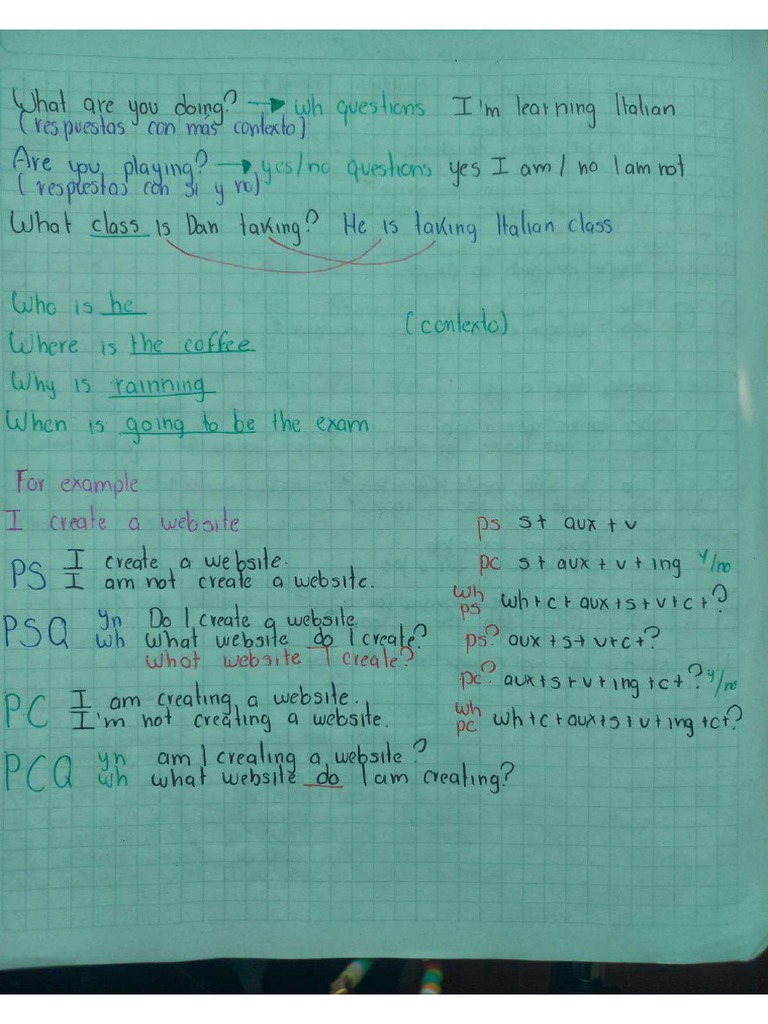 What are you doing? → wh questions I'm learning Italian
(respuestas con más contexto)
Are you playing? → yes/no questions yes I am / no I am not
(respuestas con si y no)
What class is Dan taking? He is taking Italian class
Who is he
(contexto)
Where is the coffee
Why is rainning
When is going to be the exam
For example
I create a website
PS I create a website.
I am not create a website.
PSQ yn Do I create a website
wh what website do I create?
what website I create?
PC I am creating a website.
I'm not creating a website.
PCQ yn am I creating a website?
wh what website do I am creating?
ps s+ aux + v
pc s + aux + v + ing y/no
wh ps wh+c+aux+s+v+c+?
ps? aux+s+v+c+?
pc? aux+s+v+ing+c+? y/no
wh pc wh+c+aux+s+v+ing+c+?